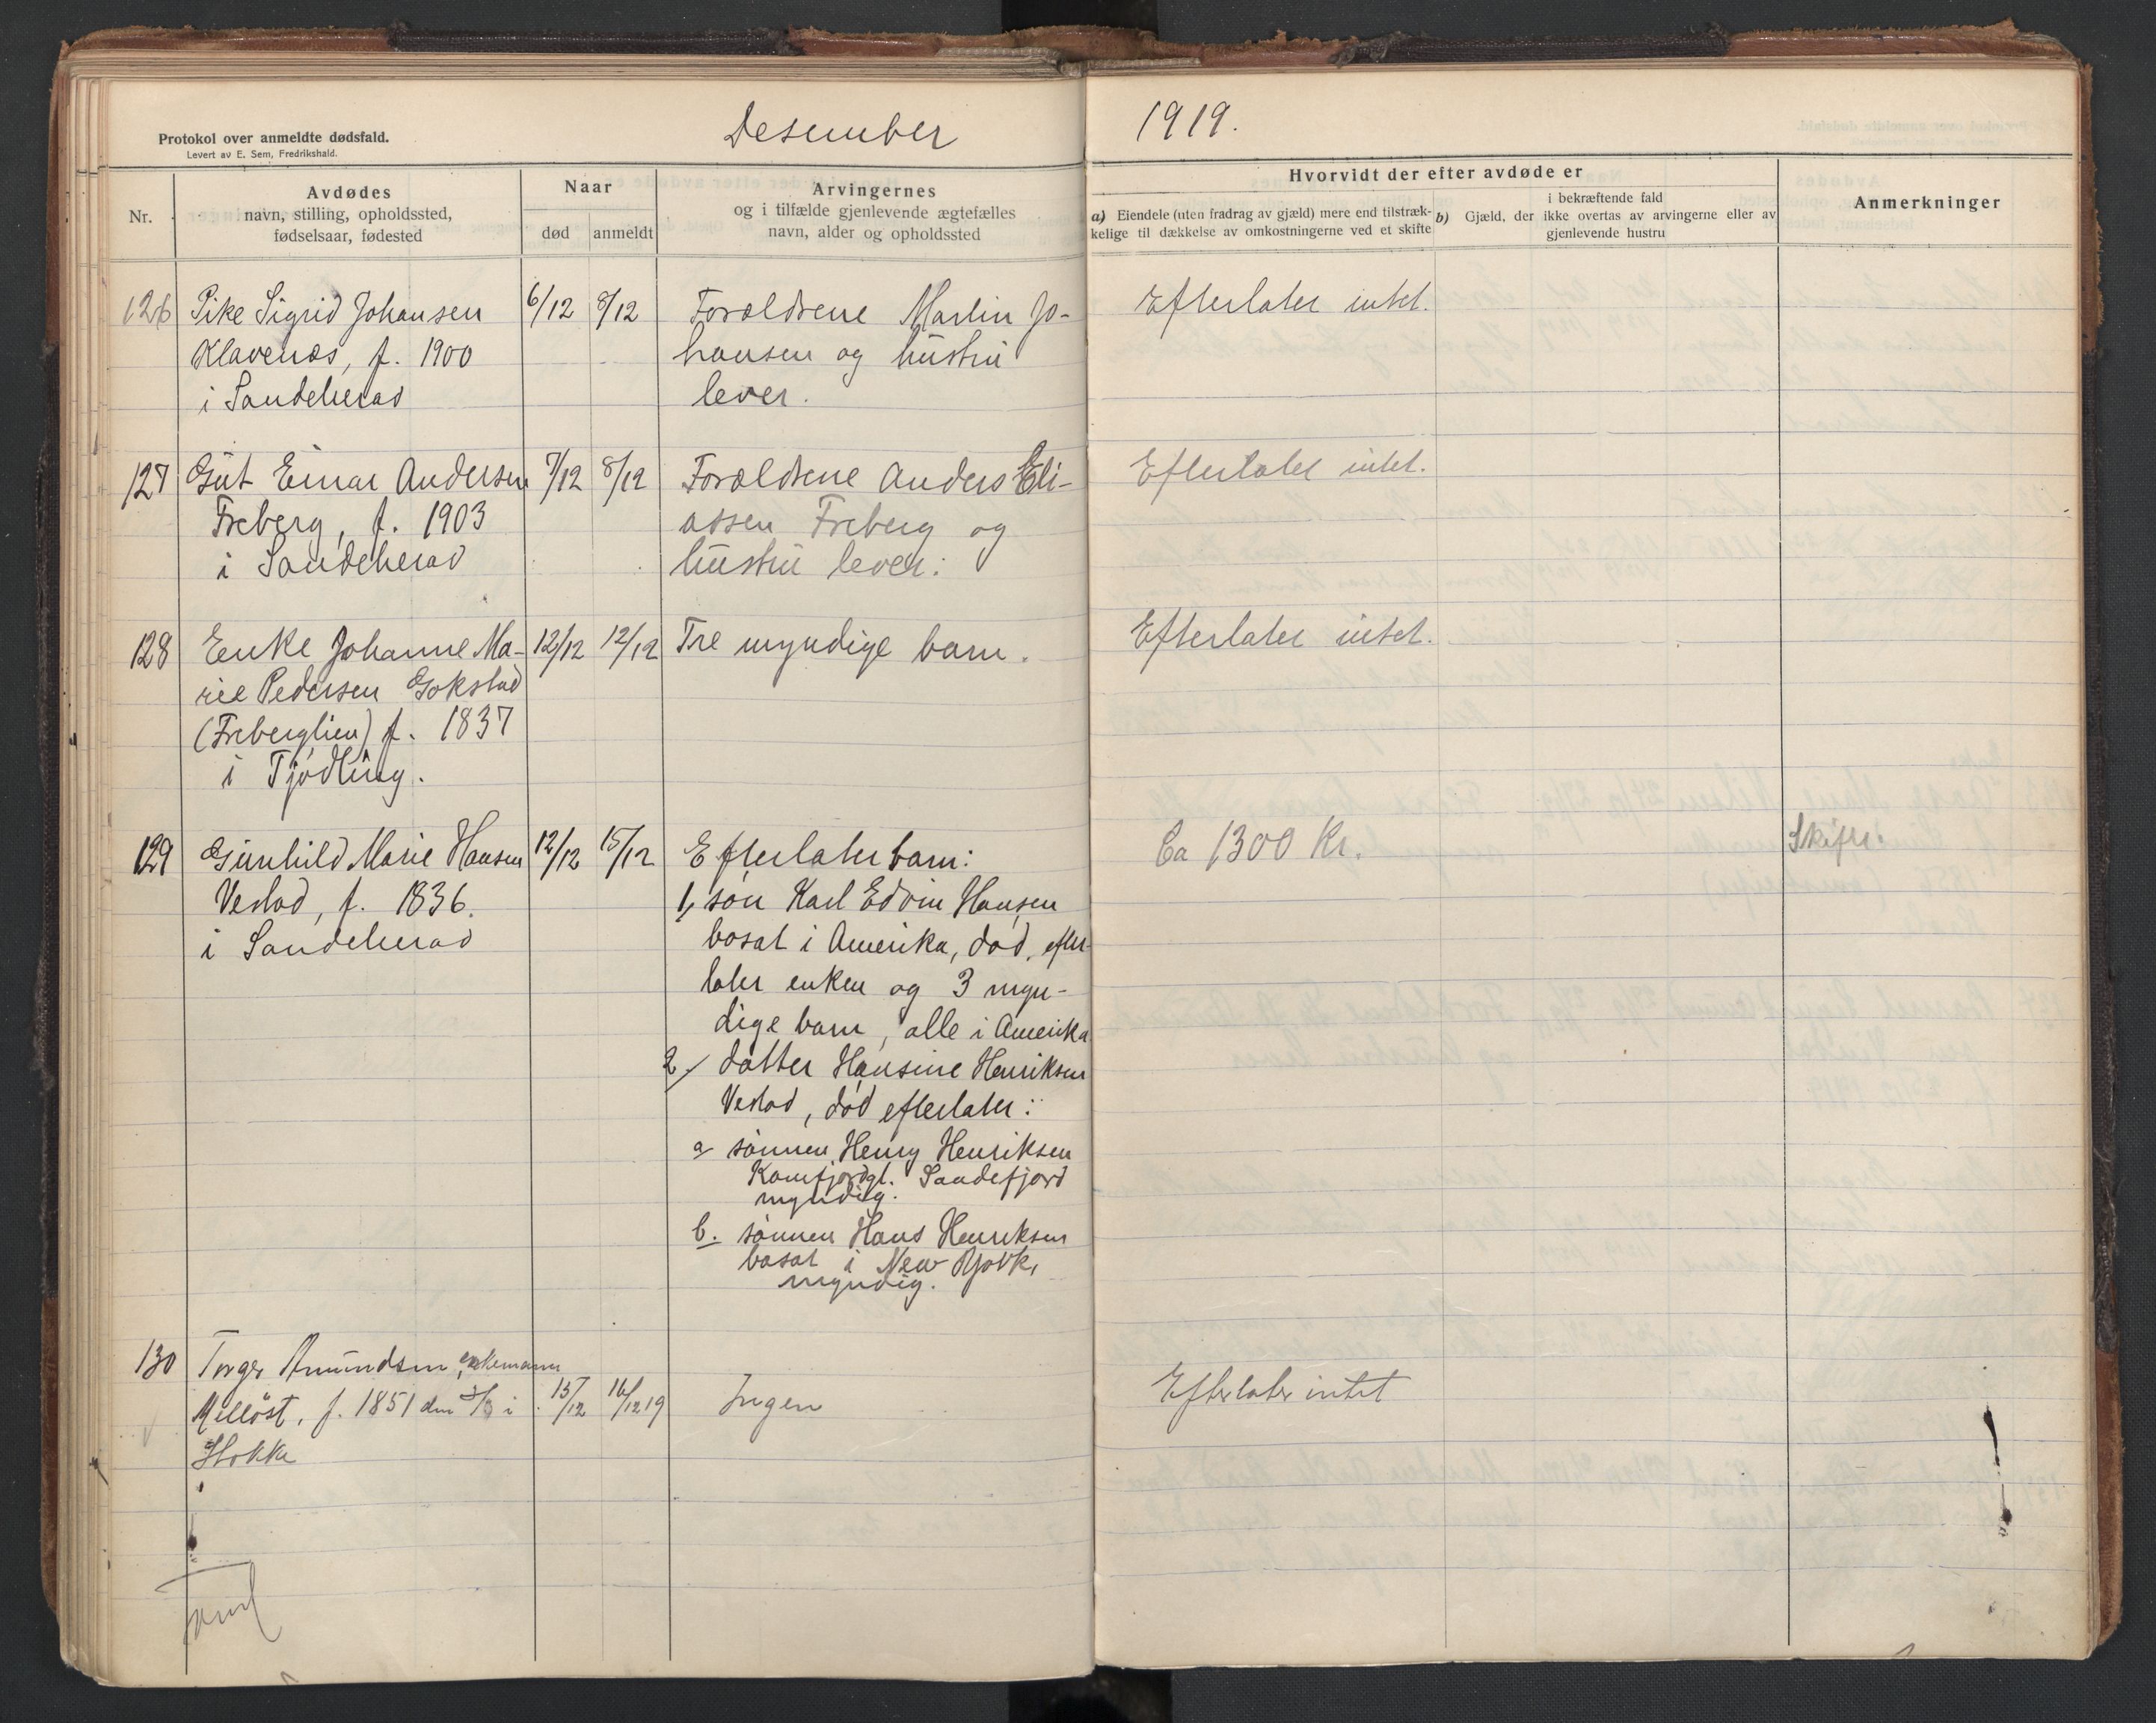 Protokol over anmeldte dødsfald.
Levert av E. Sem, Fredrikshald.
Desember
1919.
Nr.
Avdødes
navn, stilling, opholdssted,
fødselsaar, fødested
Naar
død
anmeldt
Arvingernes
og i tilfælde gjenlevende ægtefælles
navn, alder og opholdssted
Hvorvidt der efter avdøde er
a) Eiendele (uten fradrag av gjæld) mere end tilstræk-
kelige til dækkelse av omkostningerne ved et skifte
i bekræftende fald
b) Gjæld, der ikke overtas av arvingerne eller av
gjenlevende hustru
Anmerkninger
126 Pike Sigrid Johansen 6/12 8/12 Forældrene Martin Jo- Efterlater intet.
Klavenæs, f. 1900 hansen og hustru
i Sandeherad lever.
127 Gut Einar Andersen 7/12 8/12 Forældrene Anders Eli- Efterlater intet.
Freberg, f. 1903 assen Freberg og
i Sandeherad hustru lever.
128 Enke Johanne Ma- 12/12 12/12 Tre myndige barn. Efterlater intet.
rie Pedersen Gokstad
(Freberglien) f. 1837
i Tjødling.
129 Gunhild Marie Hansen 12/12 15/12 Efterlater barn: Ca 1300 Kr. Skifte.
Vestad, f. 1836. 1, søn Karl Edvin Hansen
i Sandeherad bosat i Amerika, død, efter-
later enken og 3 myn-
dige barn, alle i Amerika
2/ datter Hansine Henriksen
Vestad, død efterlater:
a sønnen Henry Henriksen
Kamfjordgt. Sandefjord
myndig.
b. sønnen Hans Henriksen
bosat i New York,
myndig.
130 Torger Amundsen, enkemann
Melløst, f. 1851 den i 15/12 16/12 19 Ingen Efterlater intet
Stokke